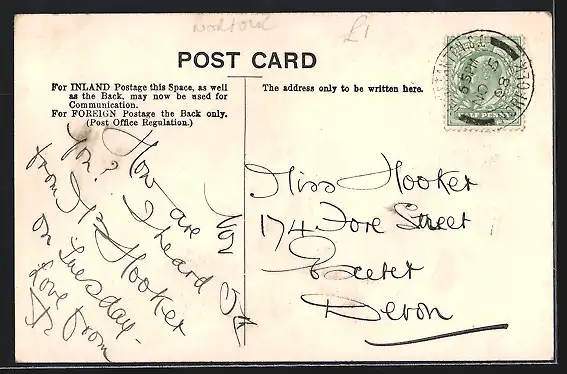 £1
POST CARD
For INLAND Postage this Space, as well
as the Back, may now be used for
Communication.
For FOREIGN Postage the Back only.
(Post Office Regulation.)
The address only to be written here.
HALF PENNY
How are
you? I heard
from
Hooker
on Tuesday -
Love from
Miss Hooker
174 Fore Street
Exeter
Devon